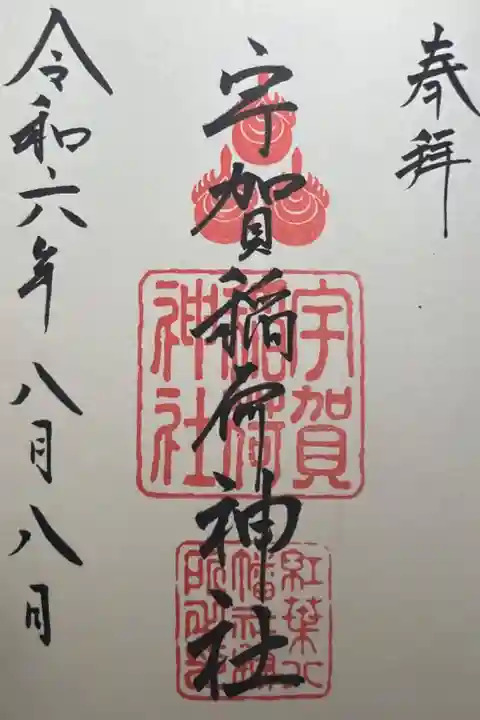 奉拝
宇賀稲荷神社
宇賀
稲荷
神社
紅葉八
幡社鎮
令和六年八月八日